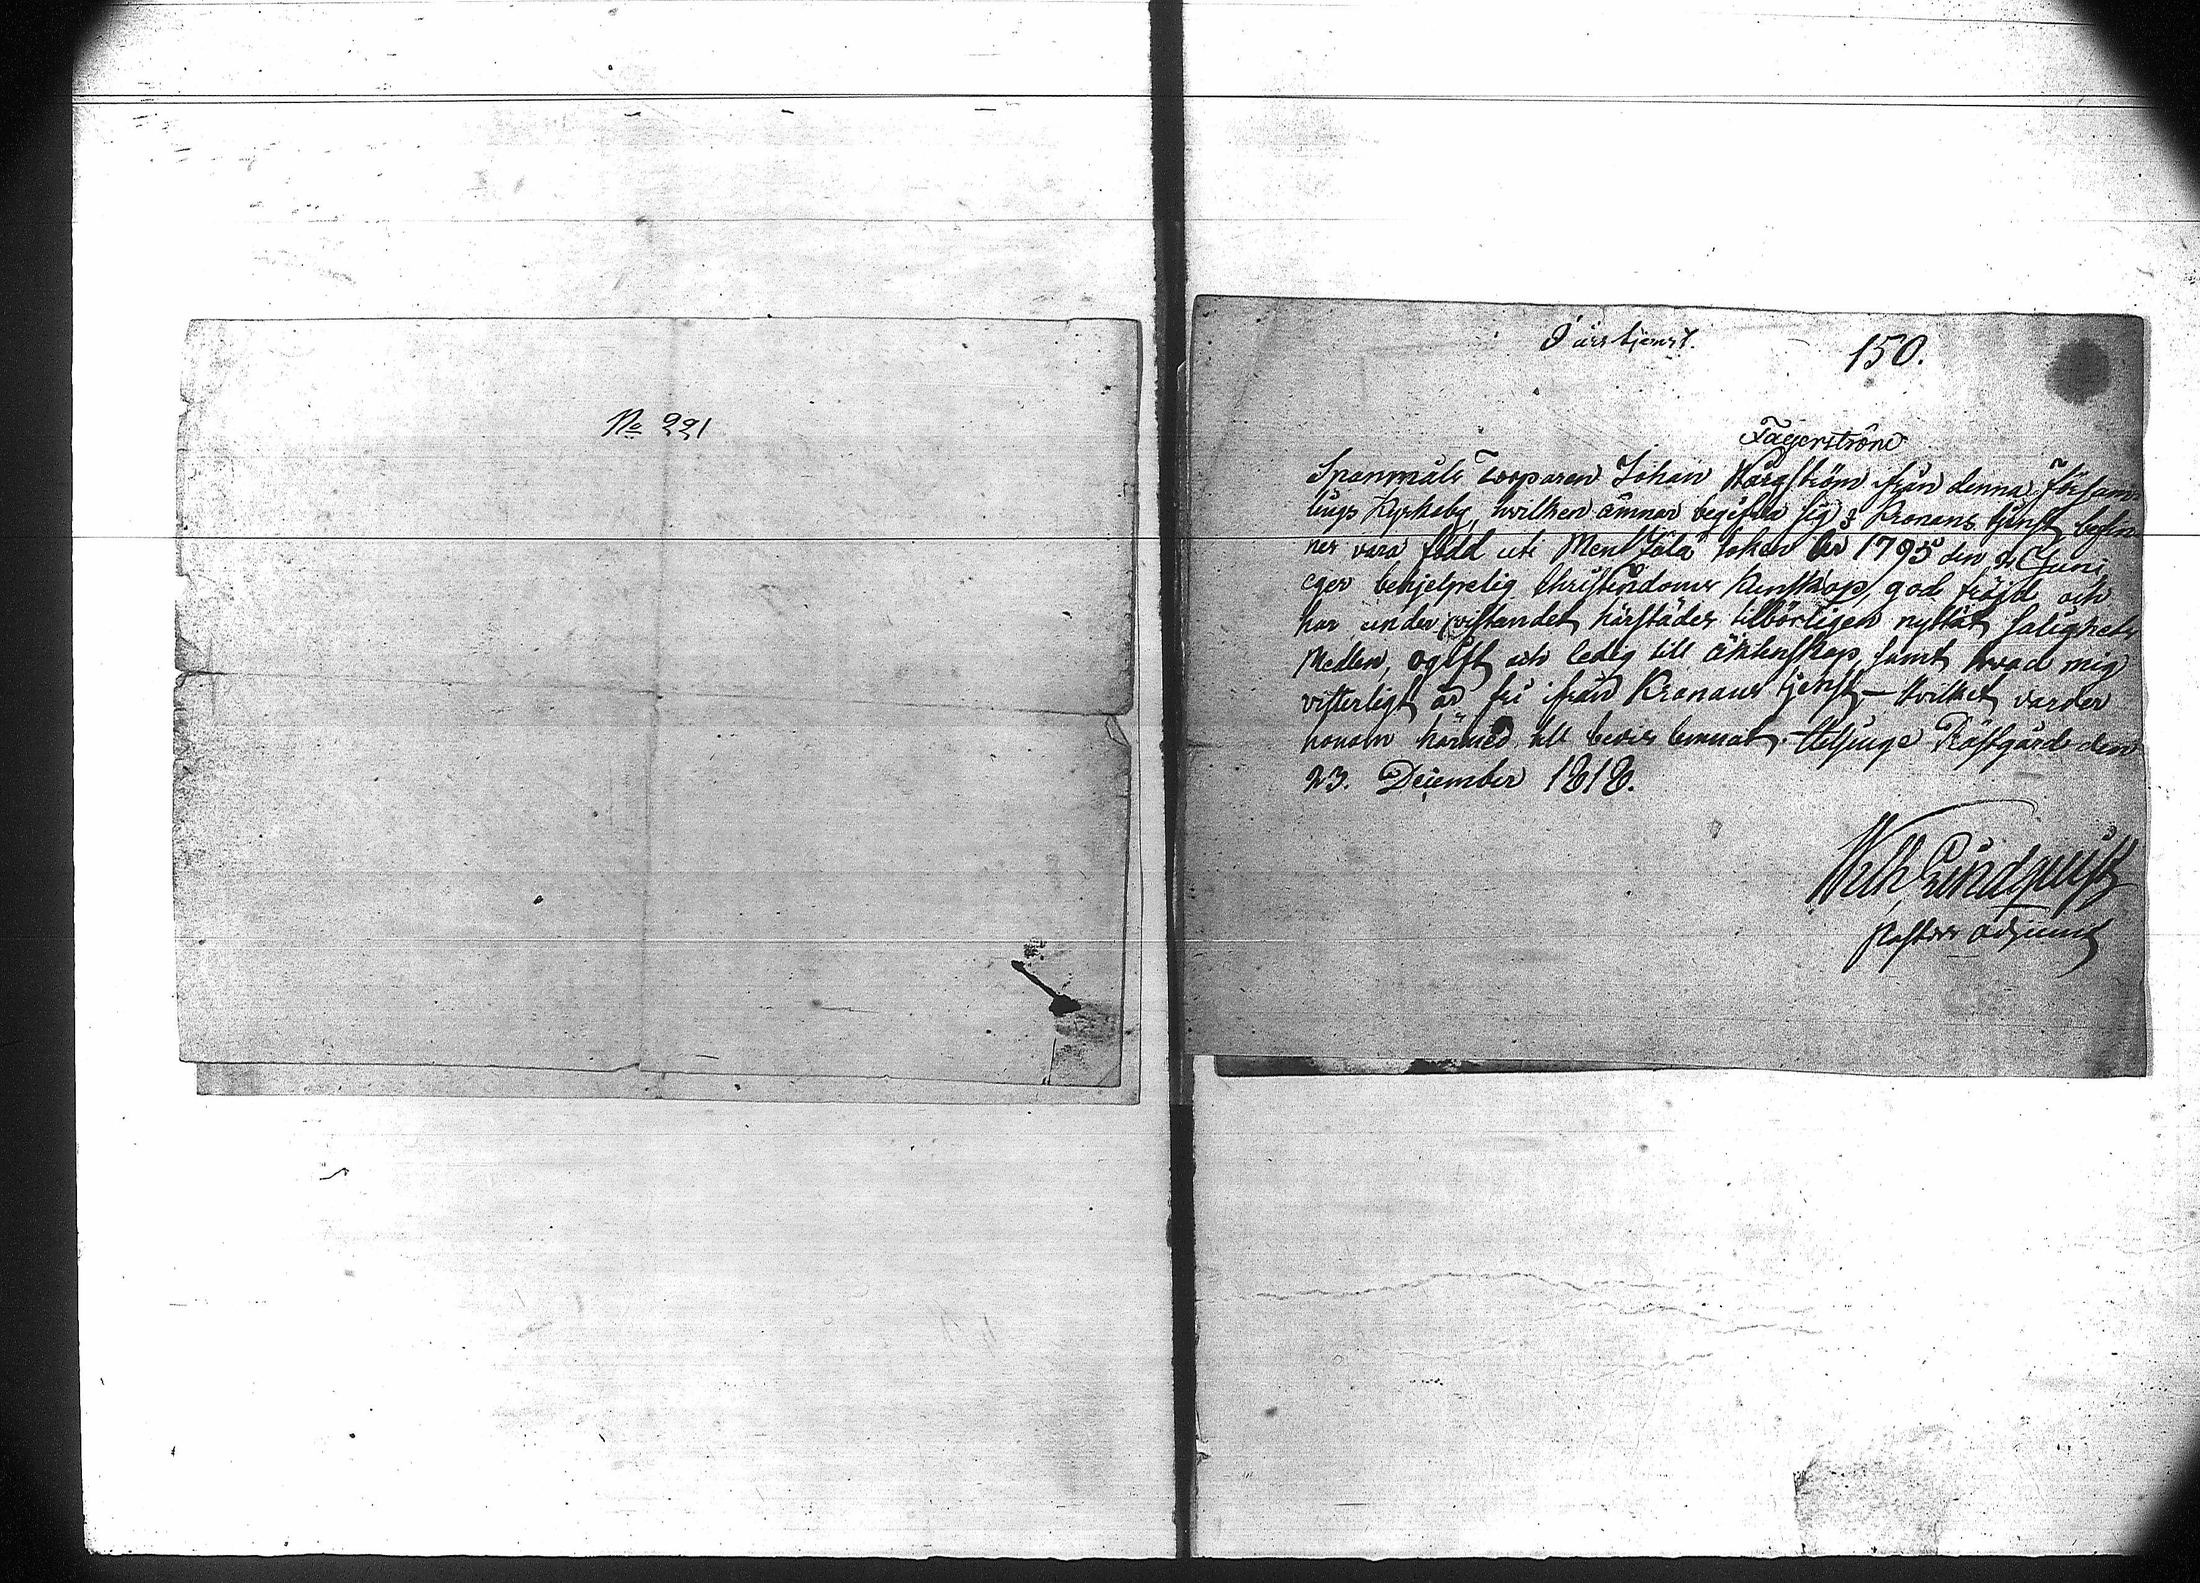 No 221
6 års tjenst.
150.
Fagerström
Spanmåls Torparen Johan Wargström från denna Försam-
lings Kyrkoby, hvilken ämnar begifva sig i Kronans tjenst, befin-
nes vara född uti Socken år 1795 den 2 Juni
eger behjelpelig Christendoms Kunskap, god fräjd och
har under vistandet härstädes tillbörligen nyttjat salighets
Medlen, ogift och ledig till äktenskap, samt hvad mig
vitterligt är fri ifrån Kronans tjenst, – Hvilket varder
honom härmed till bevis lemnat. Helsinge Prästgård den
23. December 1818.
Wilh Lindquist
Pastors adjunct